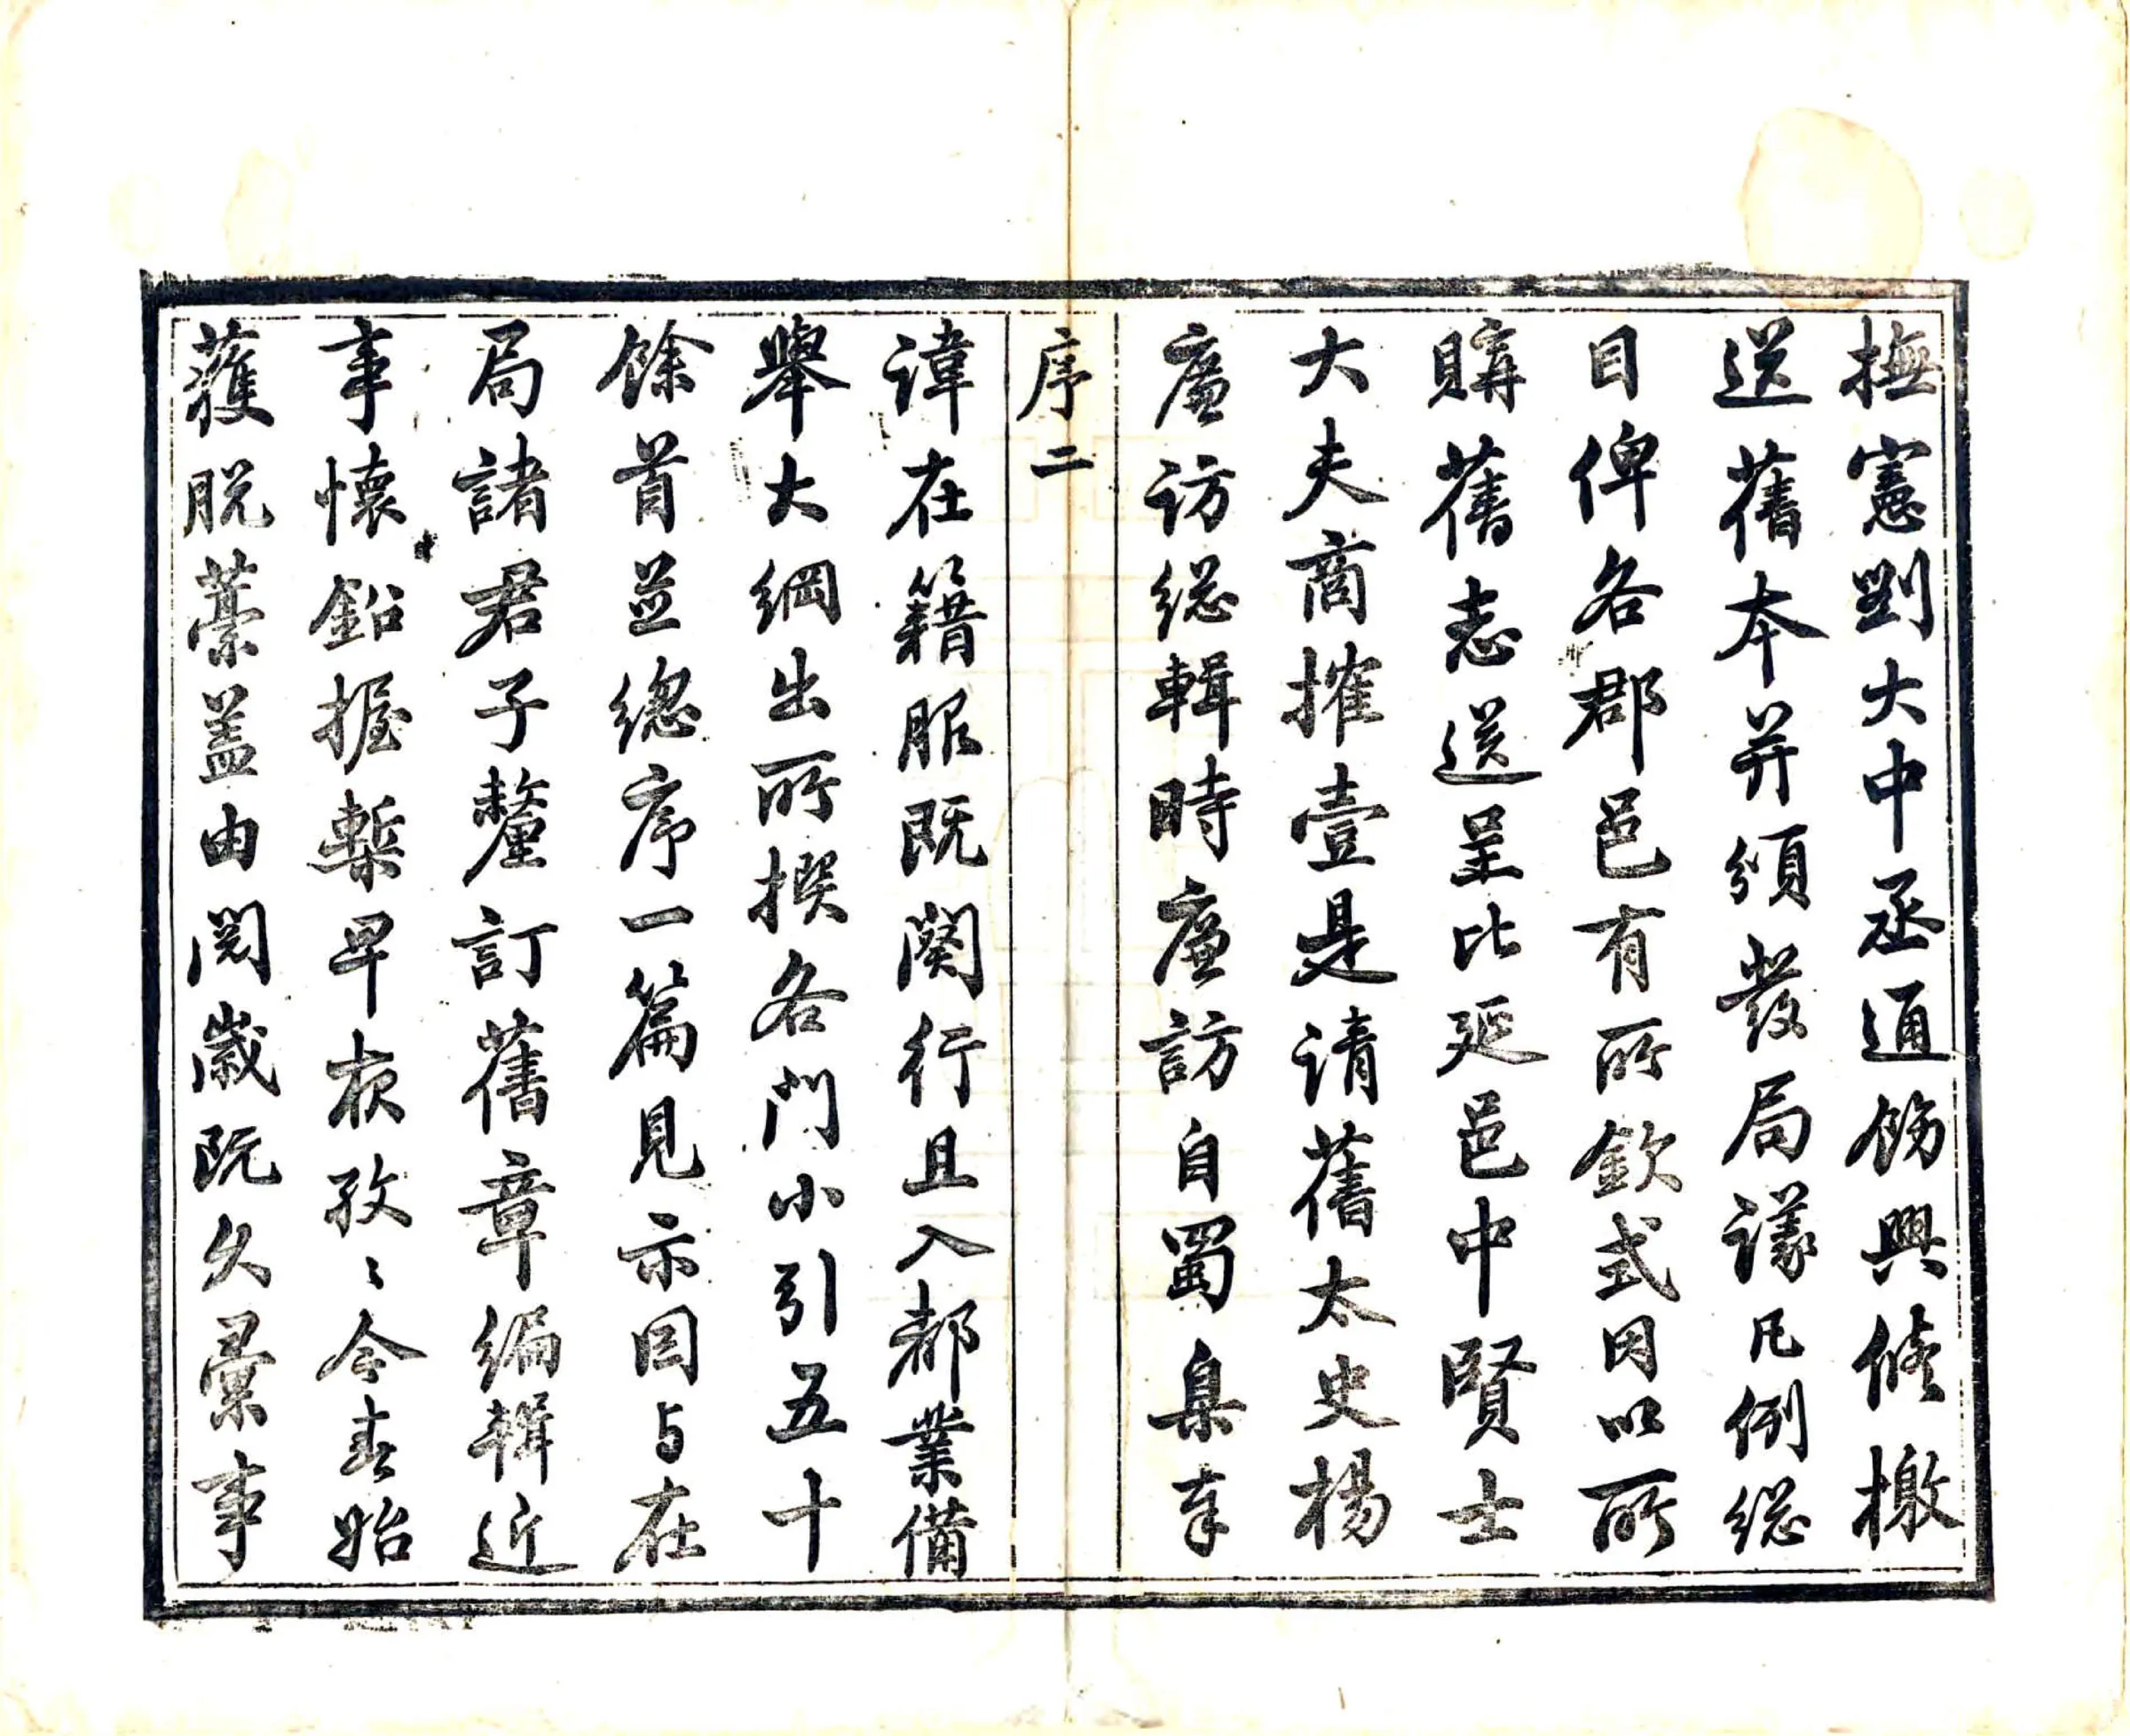 撫憲劉大中丞通飭興修檄
送舊本并頒發局議凡例總
目俾各郡邑有所欽式因以所
購舊志送呈比延邑中賢士
大夫商搉壹是請舊太史楊
廉訪總輯時廉訪自蜀臬奉
序二
諱在籍服既闋行且入都業備
舉大綱出所撰各門小引五十
餘首並總序一篇見示因与在
局諸君子釐訂舊章編輯近
事懷鉛握槧早夜孜〻今春始
獲脫藁盖由閱歲既久彚事